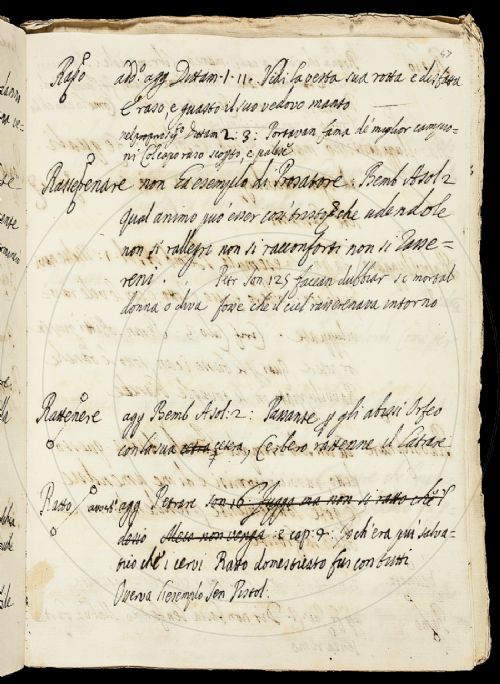 47
Raso add. agg Dittam. 1. 11. Vidi la vesta sua rotta e disfatta
E raso, e guasto il suo vedovo manto
Dittam 2. 3: Portavan fama de miglior campio-
ni Col capo raso
Rasserenare non ha esempllo di Prosatore. Bemb Asol: 2
Qual animo può esser così tristo, che udendole
non si rallegri non si racconforti non si rasse-
reni. Petr son 125 facean dubbiar se mortal
donna o diva fosse che il ciel rasserenava intorno
Rattenere agg Bemb Asol: 2: Passante p gli abissi Orfeo
con la sua cetra cetera, Cerbero rattenne il latrare.
Ratto agg Petrarc son 16 fugga ma non si ratto che'l
Meta non venga 2 cap: 4: Poich'era più salva-
tico che i cervi Ratto domesticato fui con tutti
Overva l'esemplo Sen Pistol.